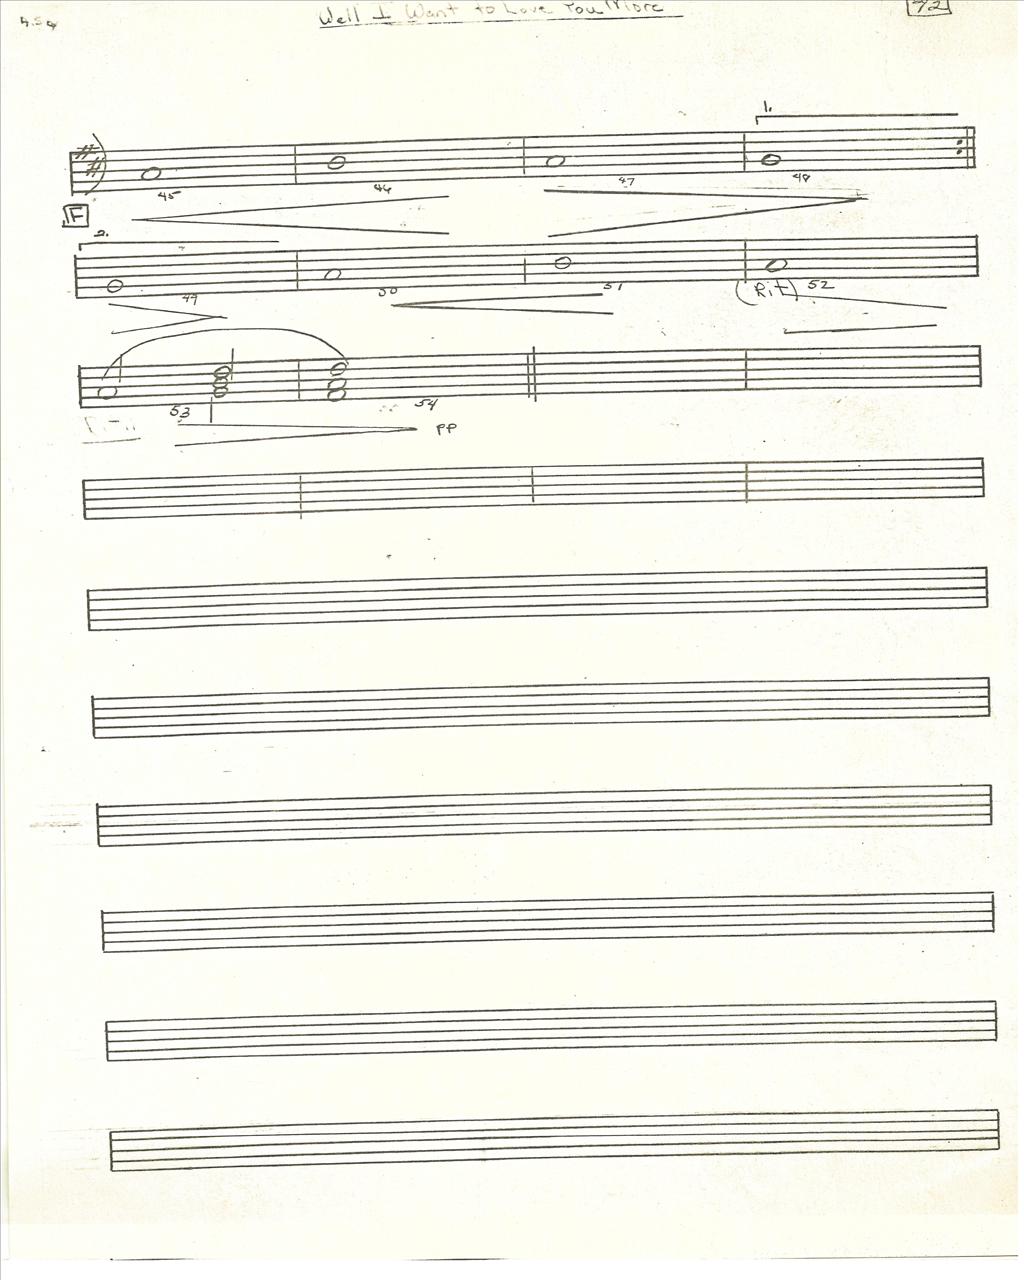 Well I Want to Love You More
1.
45 46 47 48
F
2.
49 50 51 (Rit) 52
53 54
pp